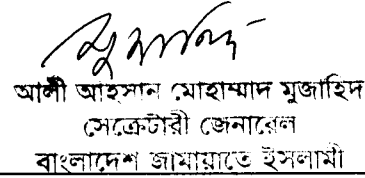 আলী আহসান মোহাম্মাদ মুজাহিদ
সেক্রেটারী জেনারেল
বাংলাদেশ জামায়াতে ইসলামী